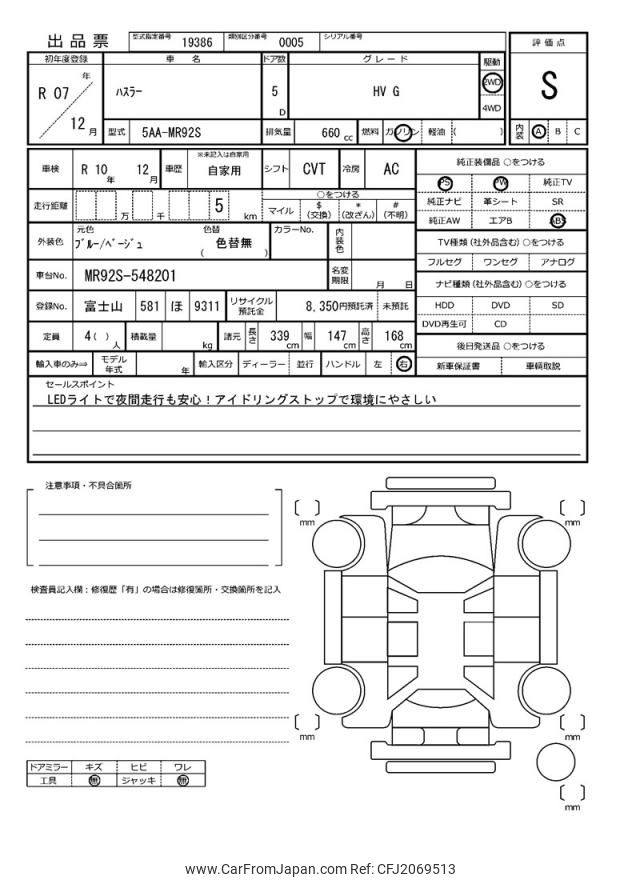 出品票 型式指定番号 19386 類別区分番号 0005 シリアル番号
初年度登録 車名 ドア数 グレード 駆動 評価点
R 07 年 12 月 ハスラー 5 D HV G 2WD 4WD S
型式 5AA-MR92S 排気量 660 cc 燃料 ガソリン 軽油 ( ) 内装 A B C
車検 R 10 年 12 月 車歴 ※未記入は自家用 自家用 シフト CVT 冷房 AC 純正装備品 ○をつける
PS PW 純正TV
走行距離 万 千 5 km ○をつける
マイル $ (交換) * (改ざん) # (不明)
純正ナビ 革シート SR
純正AW エアB ABS
外装色 元色 ブルー/ベージュ 色替 色替無 ( ) カラーNo. 内装色
TV種類 (社外品含む) ○をつける
フルセグ ワンセグ アナログ
車台No. MR92S-548201 名変期限 月 日
ナビ種類 (社外品含む) ○をつける
登録No. 富士山 581 ほ 9311 リサイクル預託金 8,350円預託済 未預託
HDD DVD SD
DVD再生可 CD
定員 4 ( ) 人 積載量 kg 諸元 長さ 339 cm 幅 147 cm 高さ 168 cm
後日発送品 ○をつける
輸入車のみ⇒ モデル年式 年 輸入区分 ディーラー 並行 ハンドル 左 右
新車保証書 車輌取説
セールスポイント
LEDライトで夜間走行も安心！アイドリングストップで環境にやさしい
注意事項・不具合箇所
検査員記入欄：修復歴「有」の場合は修復箇所・交換箇所を記入
[ ] mm
[ ] mm
[ ] mm
[ ] mm
[ ] mm
ドアミラー キズ ヒビ ワレ
工具 無 ジャッキ 無
www.CarFromJapan.com Ref: CFJ2069513